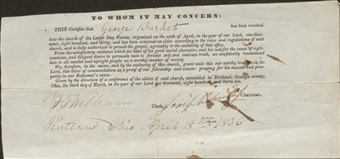 TO WHOM IT MAY CONCERN:
THIS Certifies that George Burket has been received
into the church of the Latter Day Saints, organized on the sixth of April, in the year of our Lord, one thousand, eight hundred, and thirty, and has been ordained an elder according to the rules and regulations of said church, and is duly authorized to preach the gospel, agreeably to the authority of that office.
From the satisfactory evidence which we have of his good moral character, and his zeal for the cause of righteousness, and diligent desire to persuade men to forsake evil and embrace truth, we confidently recommend him to all candid and upright people as a worthy member of society.
We, therefore, in the name, and by the authority of this church, grant unto this our worthy brother in the Lord, this letter of commendation as a proof of our fellowship and esteem: praying for his success and prosperity in our Redeemer's cause.
Given by the direction of a conference of the elders of said church, assembled in Kirtland, Geauga county, Ohio, the third day of March, in the year of our Lord one thousand, eight hundred and thirty six.
Chairman.
Clerk.
Kirtland Ohio April 18 1836